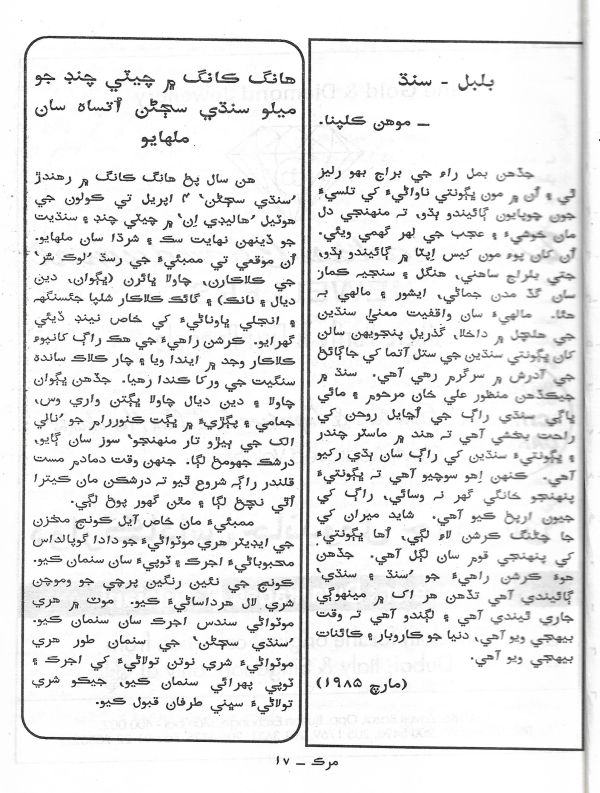 بلبل - سنڌ
— موهن ڪلپنا.
جڏهن بمل راء جي براج بهو رليز
ٿي ۽ اُن ۾ مون ڀڳونتي ناواڻيءَ کي تلسيءَ
جون چوپايون ڳائيندو ٻڌو، تہ منهنجي دل
مان خوشيءَ ۽ عجب جي لهر گهمي ويئي.
اُن کان پوءِ مون کيس اِپٽا ۾ ڳائيندو ٻڌو،
جتي بلراج ساهني، هنگل ۽ سنجيہ ڪمار
سان گڏ مدن جماڻي، ايشور ۽ مالهي بہ
هئا. مالهيءَ سان واقفيت معنيٰ سنڌين
جي هلچل ۾ داخلا، گذريل پنجويهن سالن
کان ڀڳونتي سنڌين جي ستل آتما کي جاڳائڻ
جي آدرش ۾ سرگرم رهي آهي. سنڌ ۾
جيڪڏهن منظور علي خان مرحوم ۽ مائي
ڀاڳي سنڌي راڳ جي اُڃايل روحن کي
راحت بخشي آهي تہ هند ۾ ماسٽر چندر
۽ ڀڳونتيءَ سنڌين کي راڳ سان ٻڌي رکيو
آهي. ڪنهن اِهو سوچيو آهي تہ ڀڳونتيءَ
پنهنجو خانگي گهر نہ وسائي، راڳ کي
جيون ارپڻ ڪيو آهي. شايد ميران کي
جا چٽنگ ڪرشن لاءِ لڳي، اُها ڀڳونتيءَ
کي پنهنجي قوم سان لڳل آهي. جڏهن
هوءَ ڪرشن راهيءَ جو ’سنڌ ۽ سنڌي‘
ڳائيندي آهي تڏهن هر اک ۾ مينهوڳي
جاري ٿيندي آهي ۽ لڳندو آهي تہ وقت
بيهجي ويو آهي، دنيا جو ڪاروبار ۽ ڪائنات
بيهجي ويو آهي.
(مارچ ۱۹۸۵)
هانگ ڪانگ ۾ چيٽي چنڊ جو
ميلو سنڌي سڄڻن اُتساهہ سان
ملهايو
هن سال پڻ هانگ ڪانگ ۾ رهندڙ
’سنڌي سڄڻن‘ ۴ اپريل تي ڪولون جي
هوٽيل ’هاليڊي اِن‘ ۾ چيٽي چنڊ ۽ سنڌيت
جو ڏينهن نهايت سڪ ۽ شرڌا سان ملهايو.
اُن موقعي تي ممبئيءَ جي رسڌ ’لوڪ سُر‘
جي ڪلاڪارن، چاولا ڀائرن (ڀڳوان، دين
ديال ۽ نانڪ) ۽ ڳائڪ ڪلاڪار شلپا جئسنگهہ
۽ انجلي ڀاونائيءَ کي خاص نينڊ ڏيئي
گهرايو. ڪرشن راهيءَ جي هڪ راڳ کانپوءِ
ڪلاڪار وجد ۾ ايندا ويا ۽ چار ڪلاڪ ساندهہ
سنگيت جي ورکا ڪندا رهيا. جڏهن ڀڳوان
چاولا ۽ دين ديال چاولا ڀڳتن واري وس،
جعامي ۽ پڳڙيءَ ۾ ڀڳت ڪنوررام جو ’نالي
الڪ جي ٻيڙو تار منهنجو‘ سوز سان ڳايو،
درشڪ جهومڻ لڳا. جنهن وقت دمادم مست
قلندر راڳہ شروع ٿيو تہ درشڪن مان ڪيترا
اُٿي نچڻ لڳا ۽ مٿن گهور پوڻ لڳي.
ممبئيءَ مان خاص آيل ڪونج مخزن
جي ايڊيٽر هري موٽواڻيءَ جو دادا گوپالداس
محبوباڻيءَ اجرڪ ۽ ٽوپيءَ سان سنمان ڪيو.
ڪونج جي نئين رنگين پرچي جو وموچن
شري لال هرداساڻيءَ ڪيو. موٽ ۾ هري
موٽواڻي سندس اجرڪ سان سنمان ڪيو.
’سنڌي سڄڻن‘ جي سنمان طور هري
موٽواڻيءَ شري نوتن تولاڻيءَ کي اجرڪ ۽
ٽوپي پهرائي سنمان ڪيو، جيڪو شري
تولاڻيءَ سڀني طرفان قبول ڪيو.
مرڪ — ۱۷